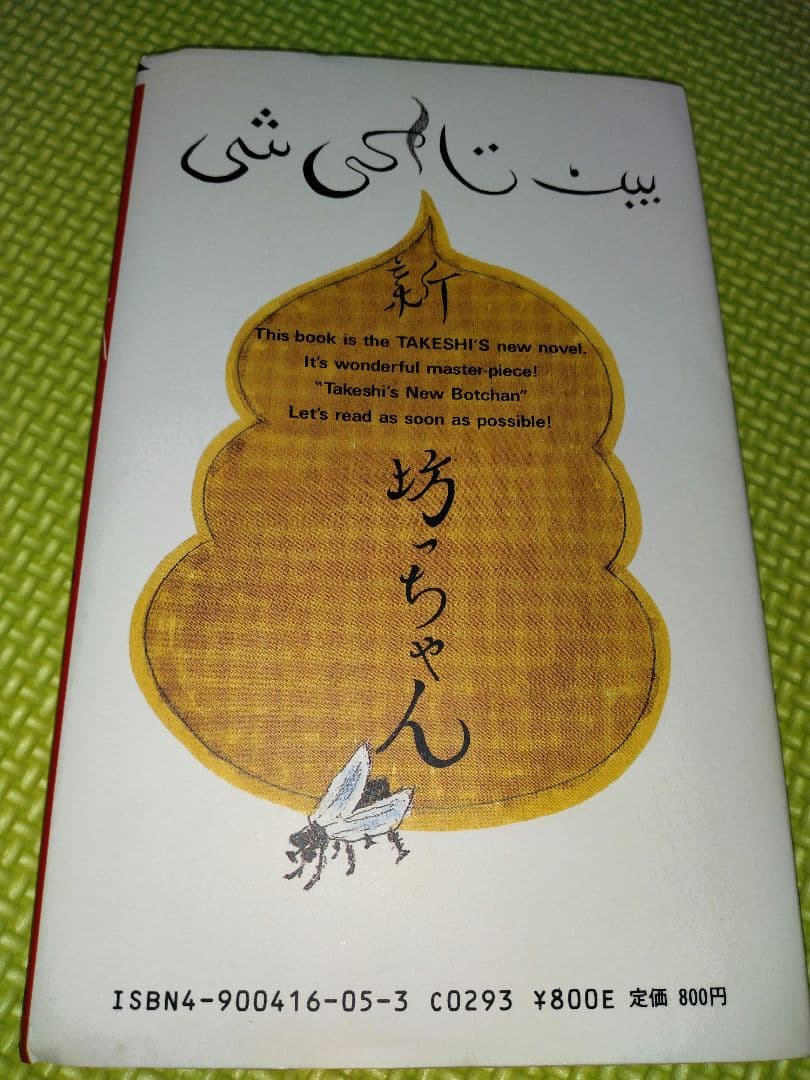 بیت تاکی شی
新
This book is the TAKESHI'S new novel.
It's wonderful master-piece!
"Takeshi's New Botchan"
Let's read as soon as possible!
坊っちゃん
ISBN4-900416-05-3 C0293 ¥800E 定価 800円